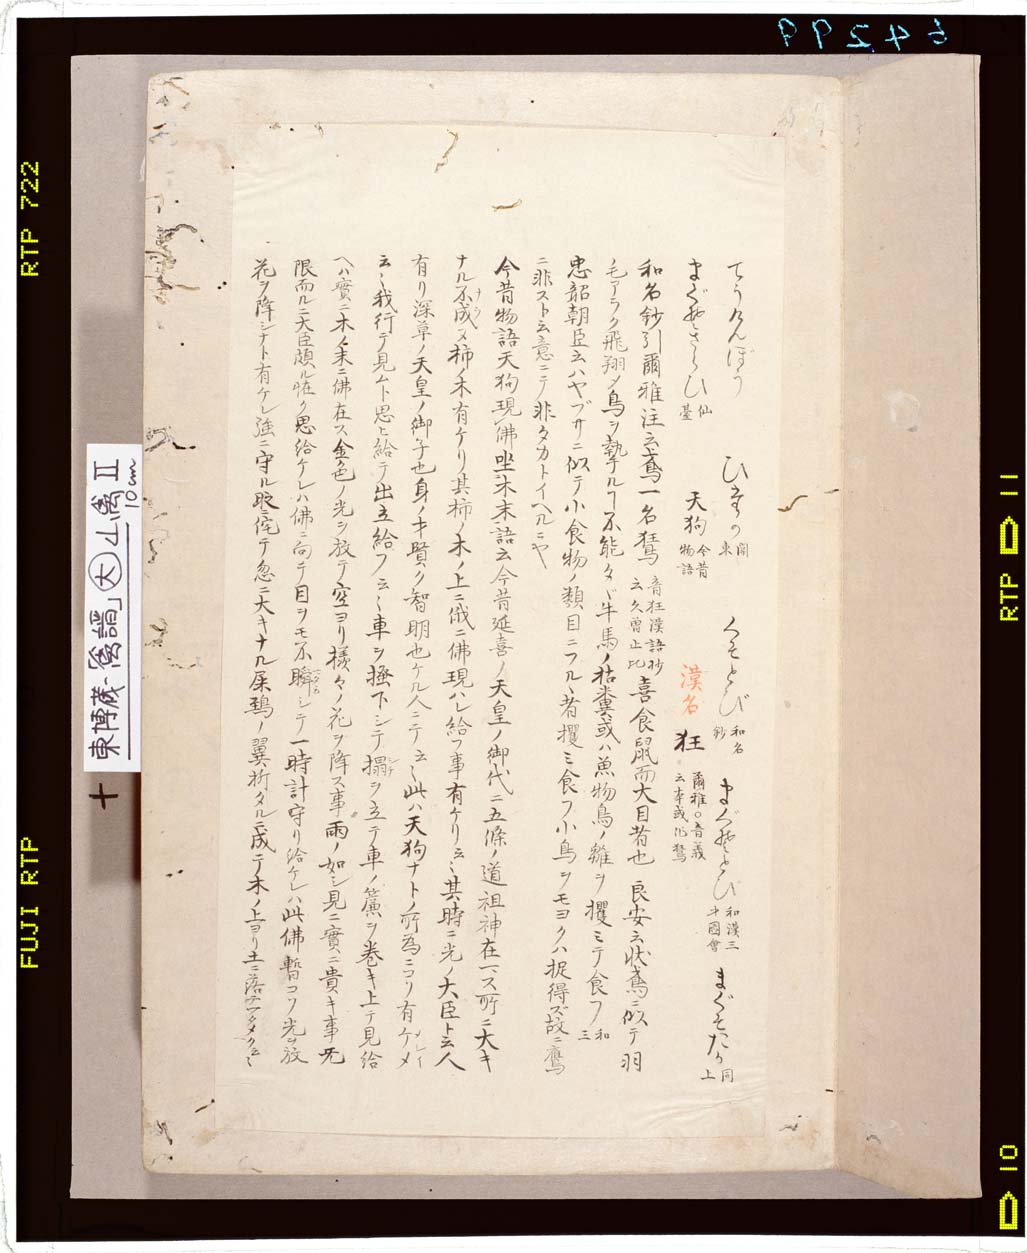 てうけんぼう ひまか 関東 くそとび 和名鈔 まぐそとび 和漢三才図会 まぐそたか 同上
まぐそさらひ 仙臺 天狗 今昔物語 漢名 狂 爾雅○音義云本或作鵟
和名鈔引爾雅注云鳶一名鵟 音狂漢語抄云久曽止比 喜食鼠而大目者也 良安云状鳶ニ似テ羽
毛アラク飛翔メ鳥ヲ執ヿ不能タヾ牛馬ノ枯糞或ハ魚物鳥ノ雛ヲ攫ミテ食フ 和三
忠韶朝臣云ハヤブサニ似テ小食物ノ類目ニフルヽ者攫ミ食フ小鳥ヲモヨクハ捉得ズ故ニ鷹
ニ非スト云意ニテ非タカトイヘルニヤ
今昔物語天狗現佛坐木末語云今昔延喜ノ天皇ノ御代ニ五條ノ道祖神在マス所ニ大キ
ナル不成ヌ柿ノ木有ケリ其柿ノ木ノ上ニ俄ニ佛現ハレ給フ事有ケリ云々其時ニ光ノ大臣ト云人
有リ深草ノ天皇ノ御子也身ノ才賢ク智明也ケル人ニテ云々此ハ天狗ナトノ所為ニコソ有ケメ
云々我行テ見ムト思ヒ給テ出立給フ云々車ヲ掻下シテ榻ヲ立テ車ノ簾ヲ巻キ上テ見給
ヘハ實ニ木ノ末ニ佛在ス金色ノ光ヲ放テ空ヨリ様々ノ花ヲ降ス事雨ノ如シ見ニ實ニ貴キ事无
限而ルニ大臣頗ル怪ク思給ケレハ佛ニ向テ目ヲモ不瞬シテ一時計守リ給ケレハ此佛暫コソ光ヲ放
花ヲ降シナト有ケレ強ニ守ル時侘テ忽ニ大キナル屎鵄ノ翼折タルニ成テ木ノ上ヨリ土ニ落テフタメク云々
東博蔵-「禽譜」大 山禽 II
10cm
54299
RTP 722
FUJI RTP
11
RTP
10